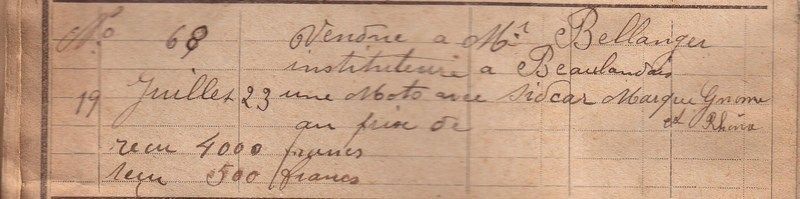 No 68 Vendue a Mr Bellanger
instituteur a Beaulandais
19 Juillet 23 une Moto avec Sidcar Marque Gnome
au prix de et Rhône
recu 4000 francs
reçu 500 francs